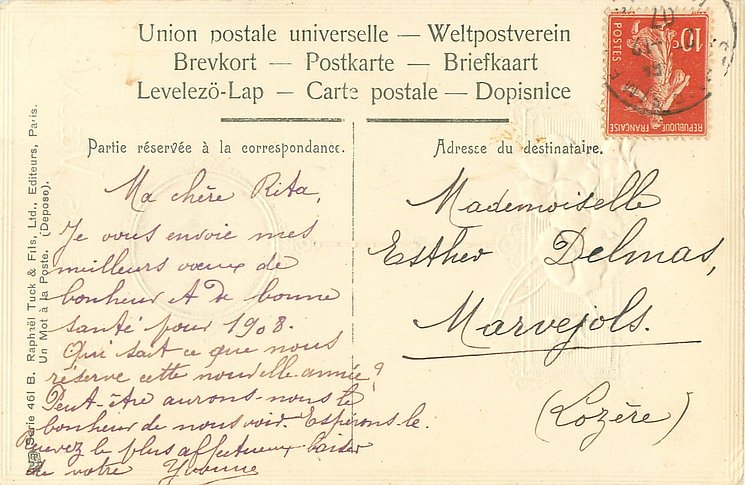 Union postale universelle — Weltpostverein
Brevkort — Postkarte — Briefkaart
Levelezö-Lap — Carte postale — Dopisnice
Partie réservée à la correspondance.
Ma chère Rita,
Je vous envoie mes
meilleurs vœux de
bonheur et de bonne
santé pour 1908.
Qui sait ce que nous
réserve cette nouvelle année?
Peut-être aurons-nous le
bonheur de nous voir. Espérons-le.
Recevez le plus affectueux baiser
de votre Yvonne
Adresse du destinataire.
Mademoiselle
Esther Delmas,
Marvejols.
(Lozère)
Série 461 B. Raphaël Tuck & Fils, Ltd., Editeurs, Paris.
Un Mot à la Poste. (Deposé).
10
POSTES
REPUBLIQUE FRANÇAISE
07